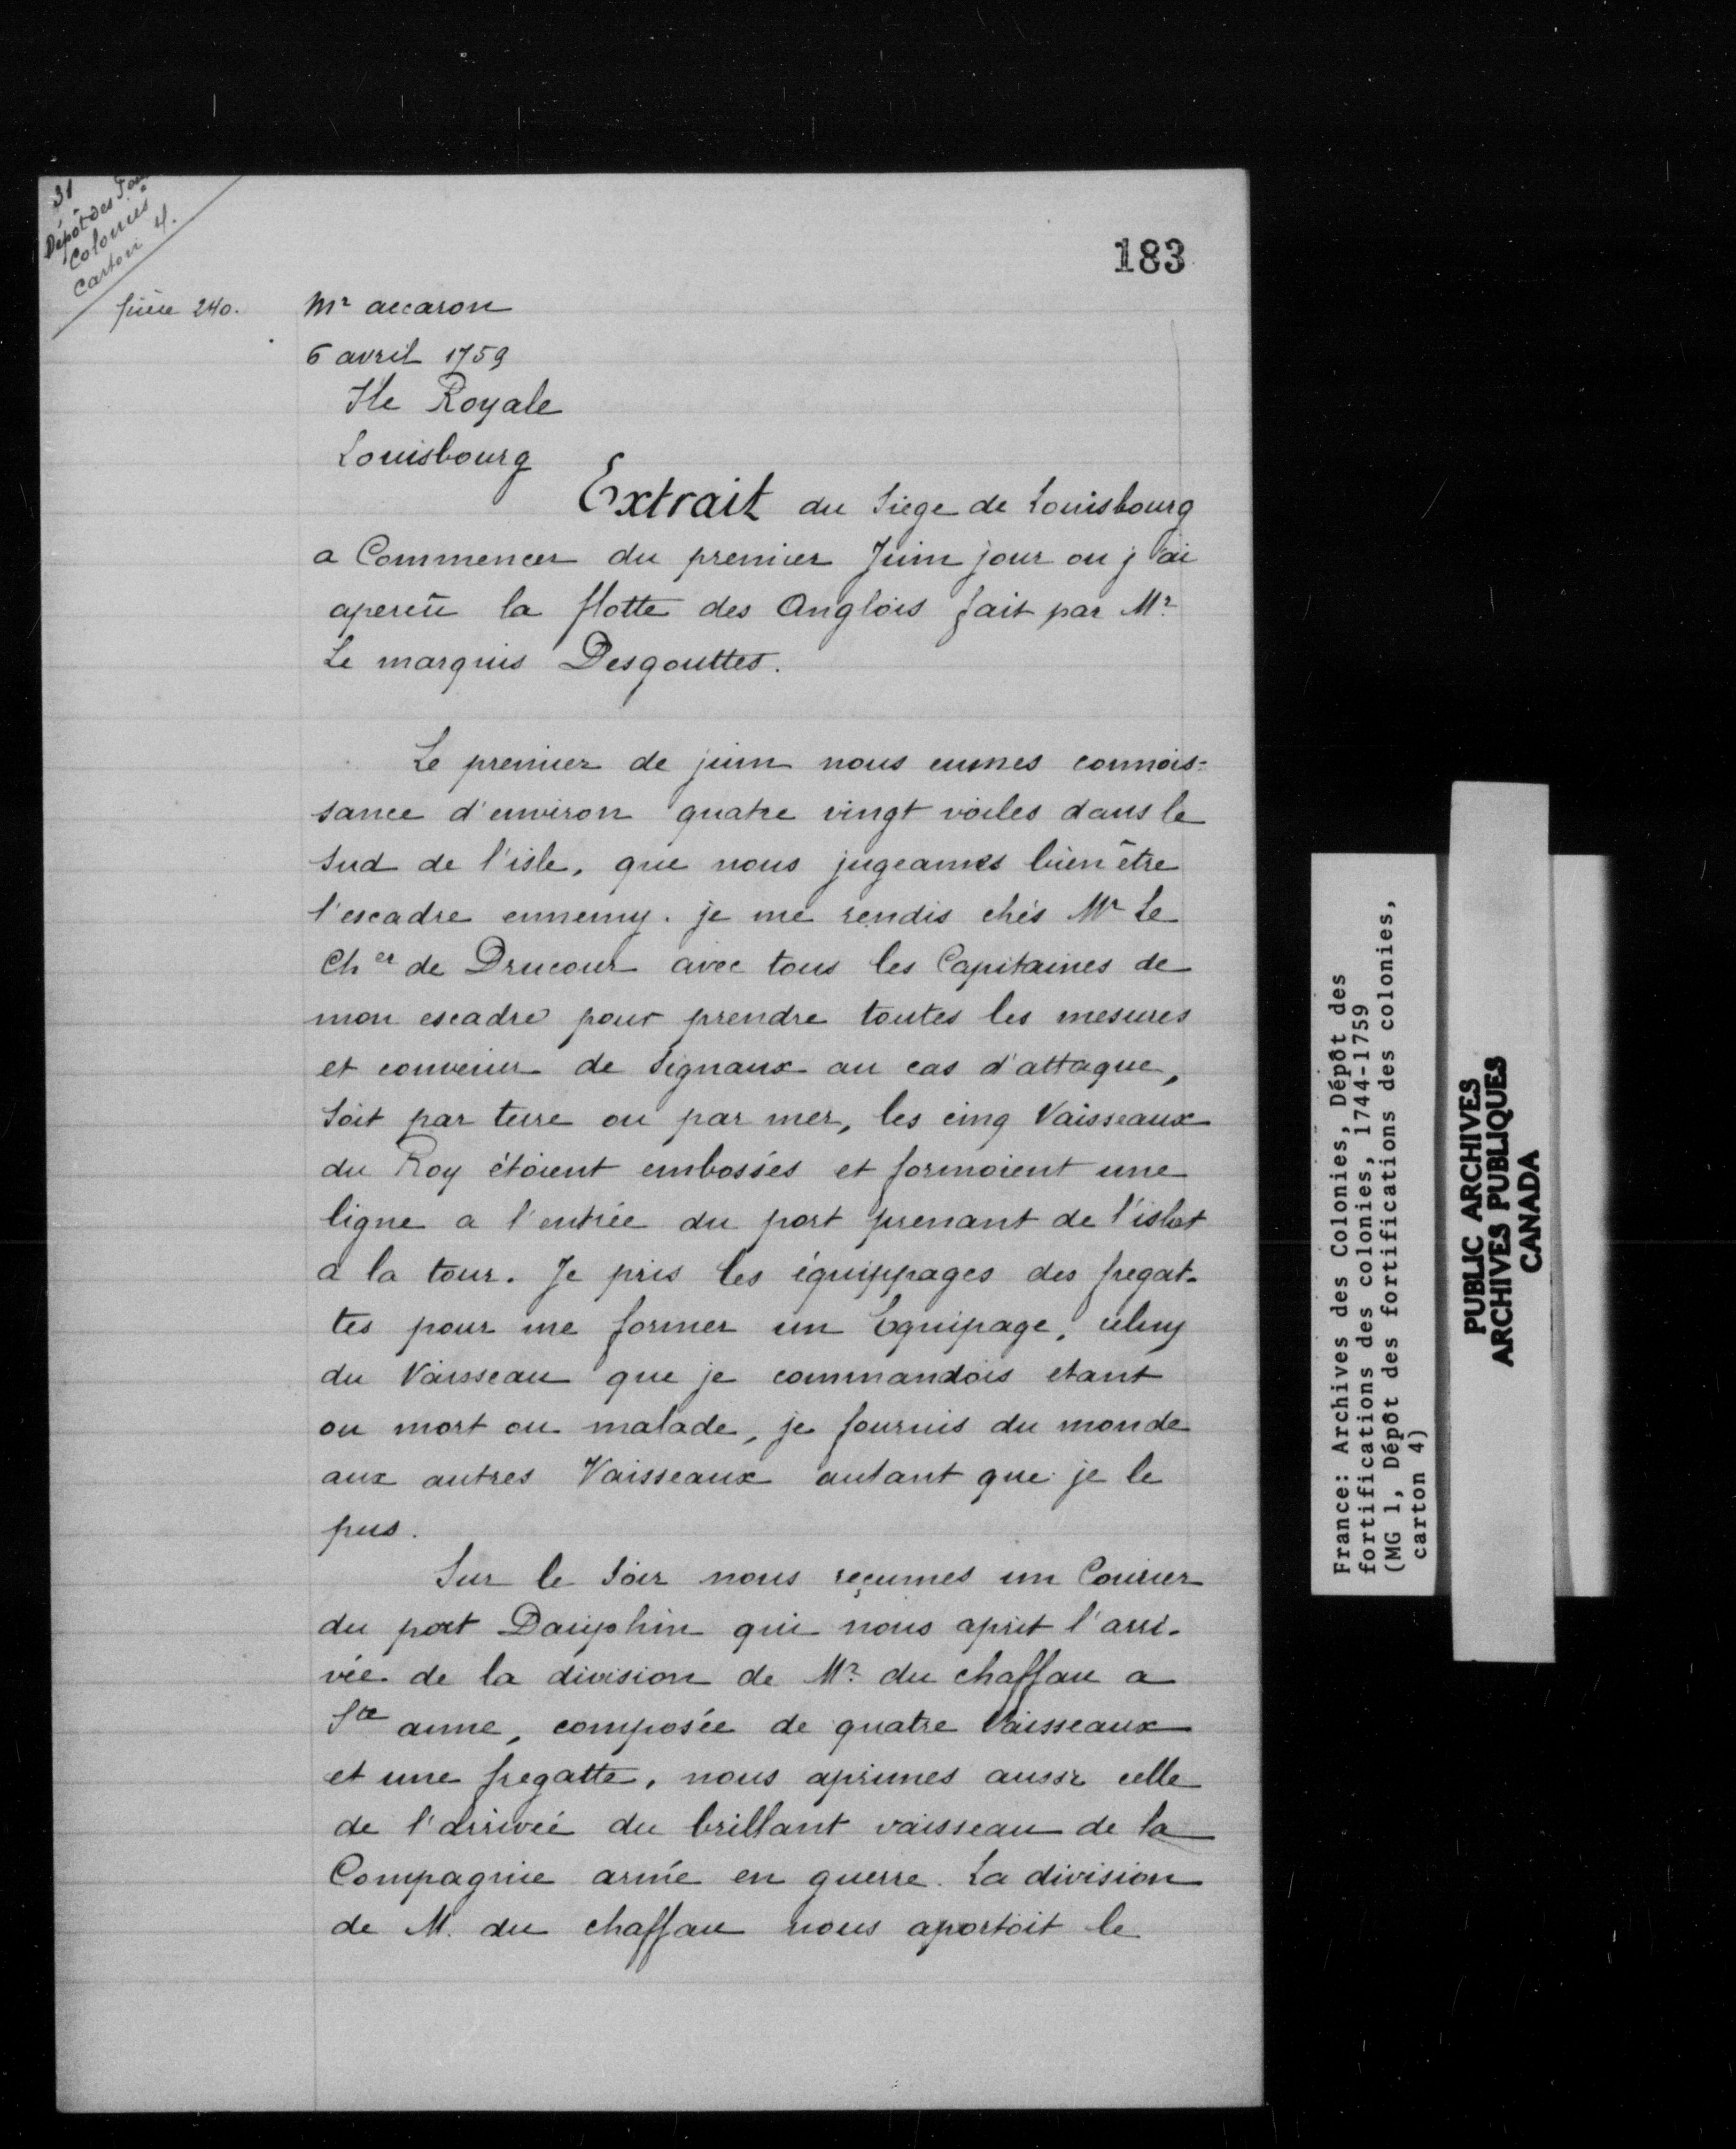 31
Dépôt des
Colonies
Carton 4.
183
pièce 240.
Mr accaron
6 avril 1759
Ile Royale
Louisbourg
Extrait du Siege de Louisbourg
a Commencer du premier Juin jour ou j'ai
apercû la flotte des Anglois fait par Mr
Le marquis Desgouttes.
Le premier de juin nous eumes connois-
sance d'environ quatre vingt voiles dans le
Sud de l'isle, que nous jugeames bien être
l'escadre ennemy. je me rendis chés Mr Le
Cher de Drucour avec tous les Capitaines de
mon escadre pour prendre toutes les mesures
et convenir de Signaux au cas d'attaque,
Soit par terre ou par mer, les cinq Vaisseaux
du Roy étoient embossés et formoient une
ligne a l'entrée du port prenant de l'islot
a la tour. Je pris les équippages des fregat-
tes pour me former un Equipage, celuy
du Vaisseau que je commandois etant
ou mort ou malade, je fournis du monde
aux autres Vaisseaux autant que je le
pus.
Sur le Soir nous reçumes un Courier
du port Dauphin qui nous aprit l'arri-
vée de la division de Mr du chaffau a
Ste anne, composée de quatre Vaisseaux
et une fregatte, nous aprimes aussi celle
de l'arrivée du brillant vaisseau de la
Compagnie armé en guerre. La division
de M. du chaffau nous aportoit le
France: Archives des Colonies, Dépôt des
fortifications des colonies, 1744-1759
(MG 1, Dépôt des fortifications des colonies,
carton 4)
PUBLIC ARCHIVES
ARCHIVES PUBLIQUES
CANADA